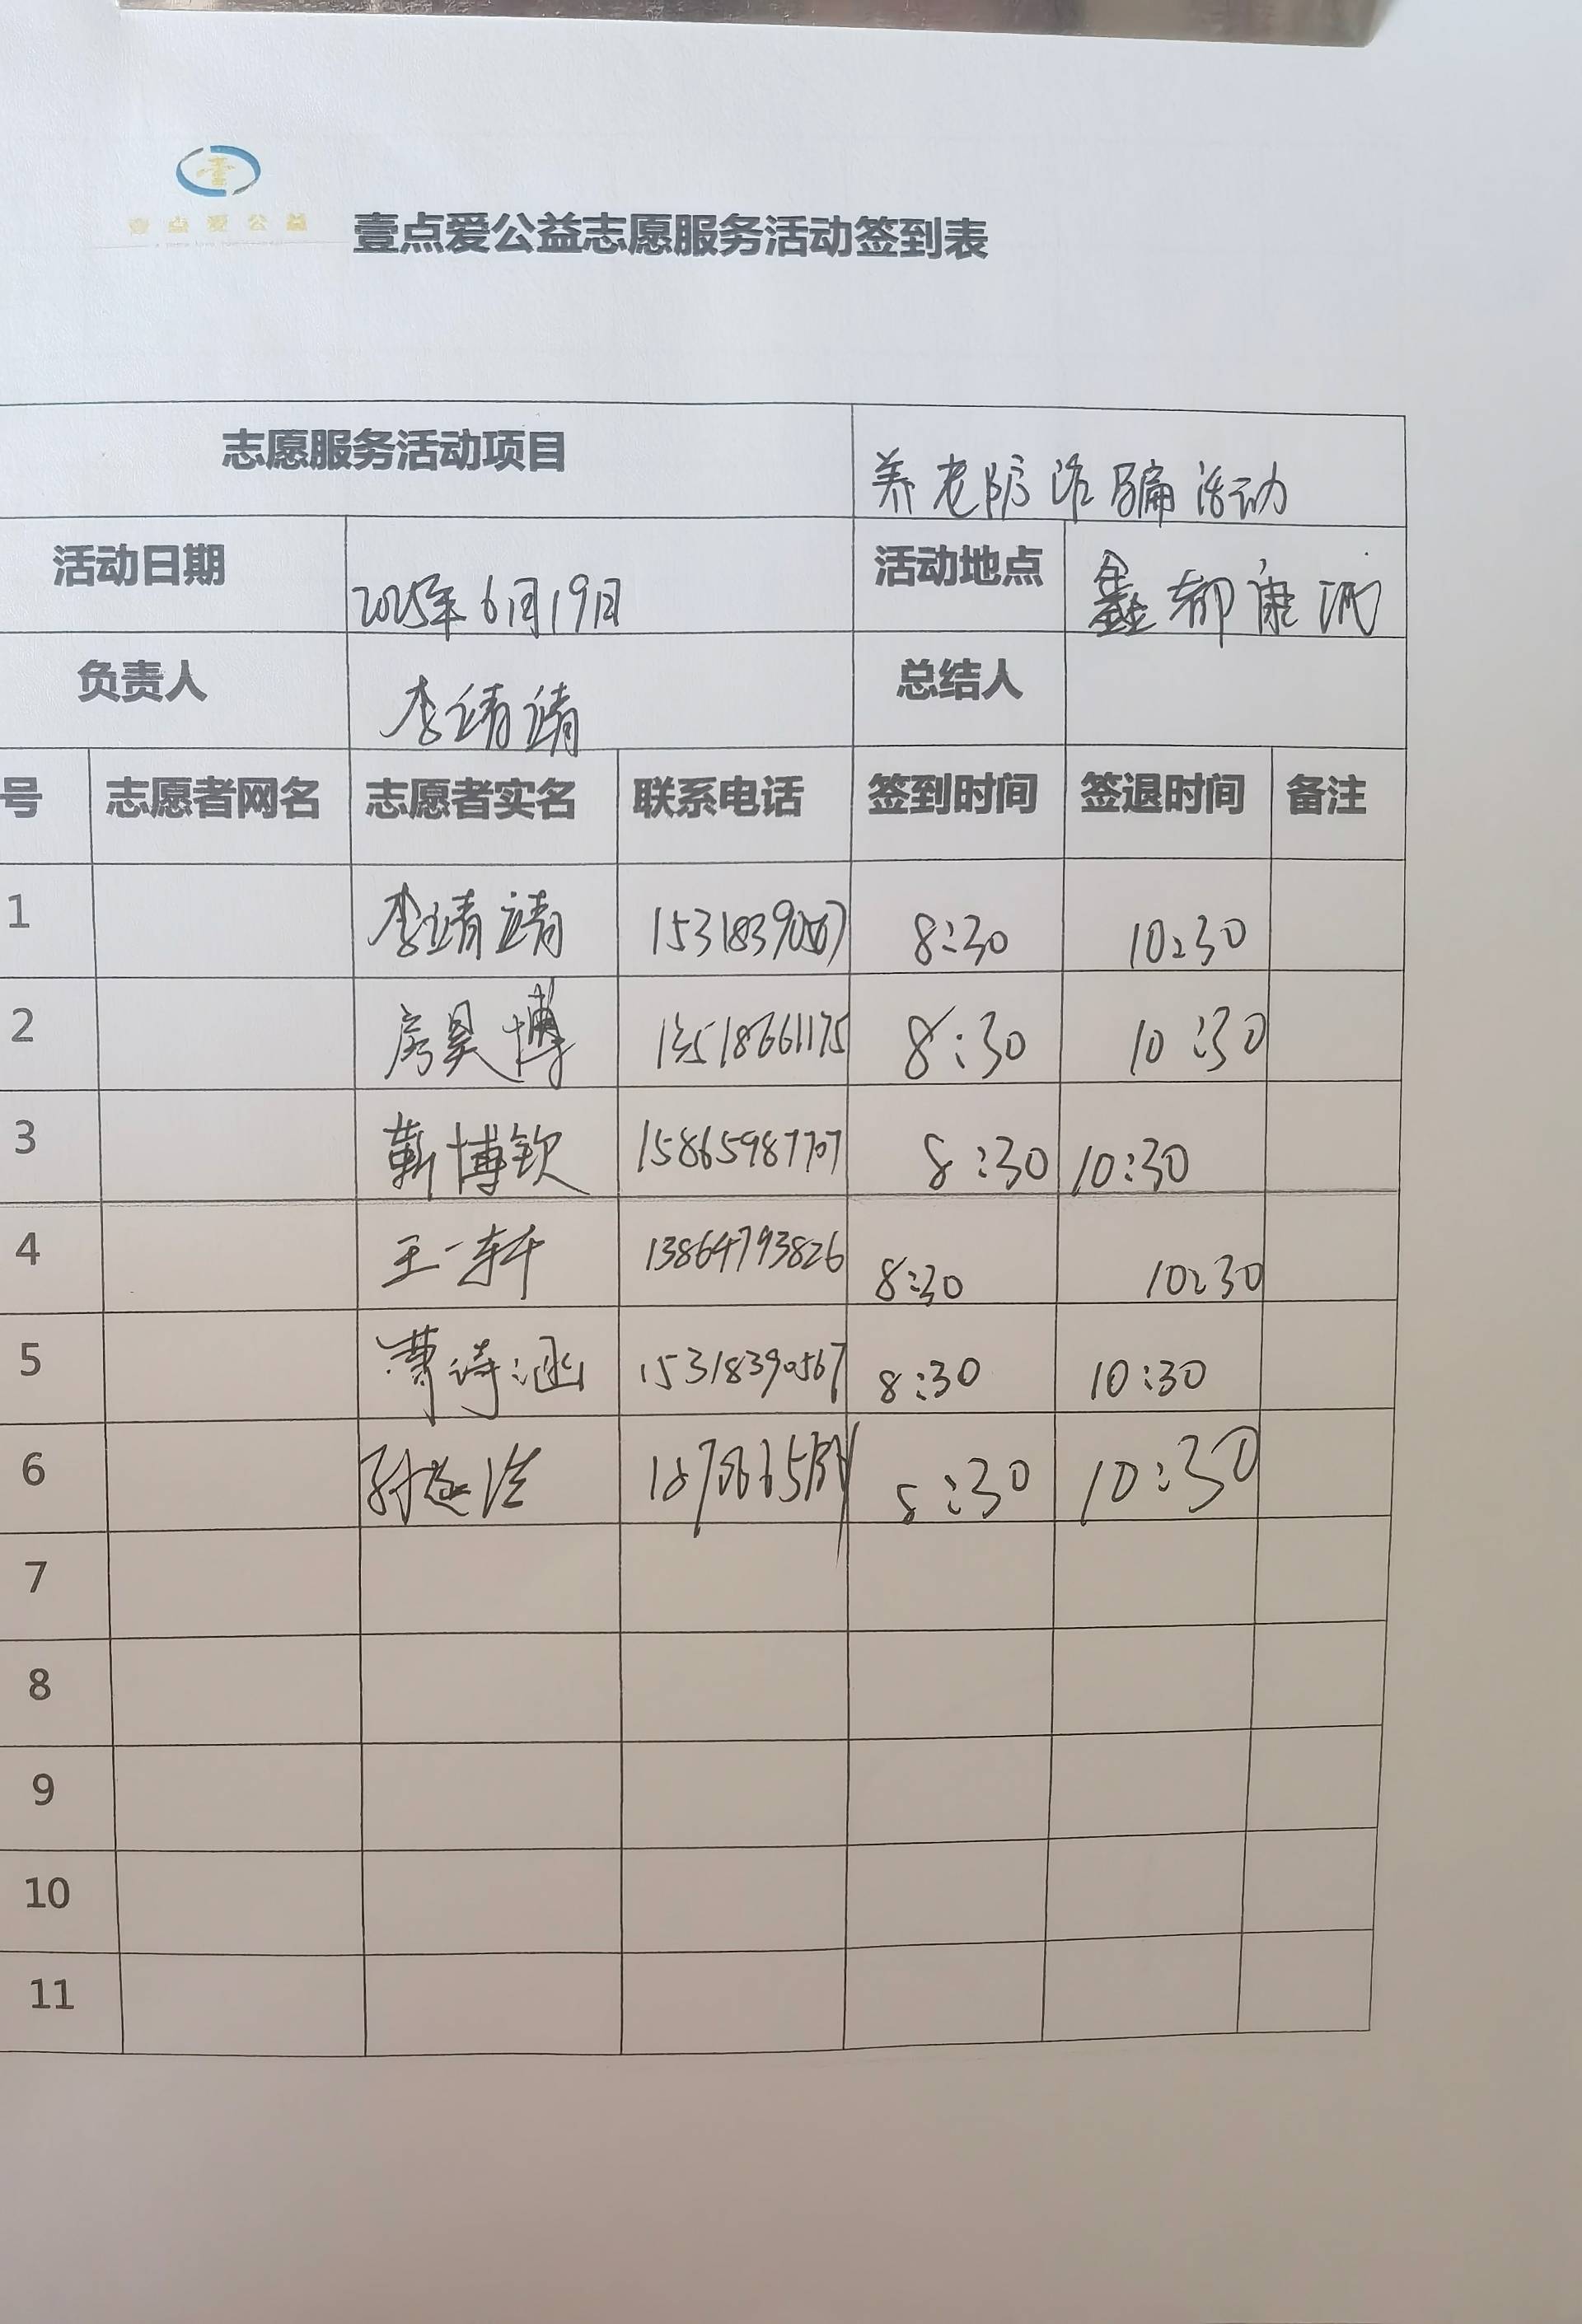 壹点爱公益
壹点爱公益志愿服务活动签到表
志愿服务活动项目 养老防诈骗活动
活动日期 2025年6月19日 活动地点 鑫都康洲
负责人 李靖靖 总结人
号 志愿者网名 志愿者实名 联系电话 签到时间 签退时间 备注
1 李靖靖 15318390567 8:30 10:30
2 房昊博 8:30 10:30
3 靳博钦 15865987707 8:30 10:30
4 王一轩 13864793826 8:30 10:30
5 曹诗涵 15318390567 8:30 10:30
6 8:30 10:30
7
8
9
10
11